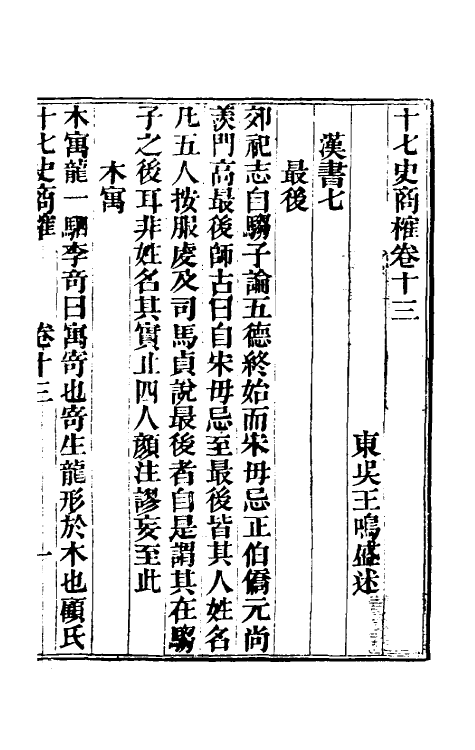 十七史商榷卷十三
東吳王鳴盛述
漢書七
最後
郊祀志自騶子論五德終始而宋毋忌正伯僑元尚
羨門高最後師古曰自宋毋忌至最後皆其人姓名
凡五人按服虔及司馬貞說最後者自是謂其在騶
子之後耳非姓名其實止四人顏注謬妄至此
木寓
木寓龍一駟李奇曰寓寄也寄生龍形於木也顧氏
十七史商榷 卷十三 一